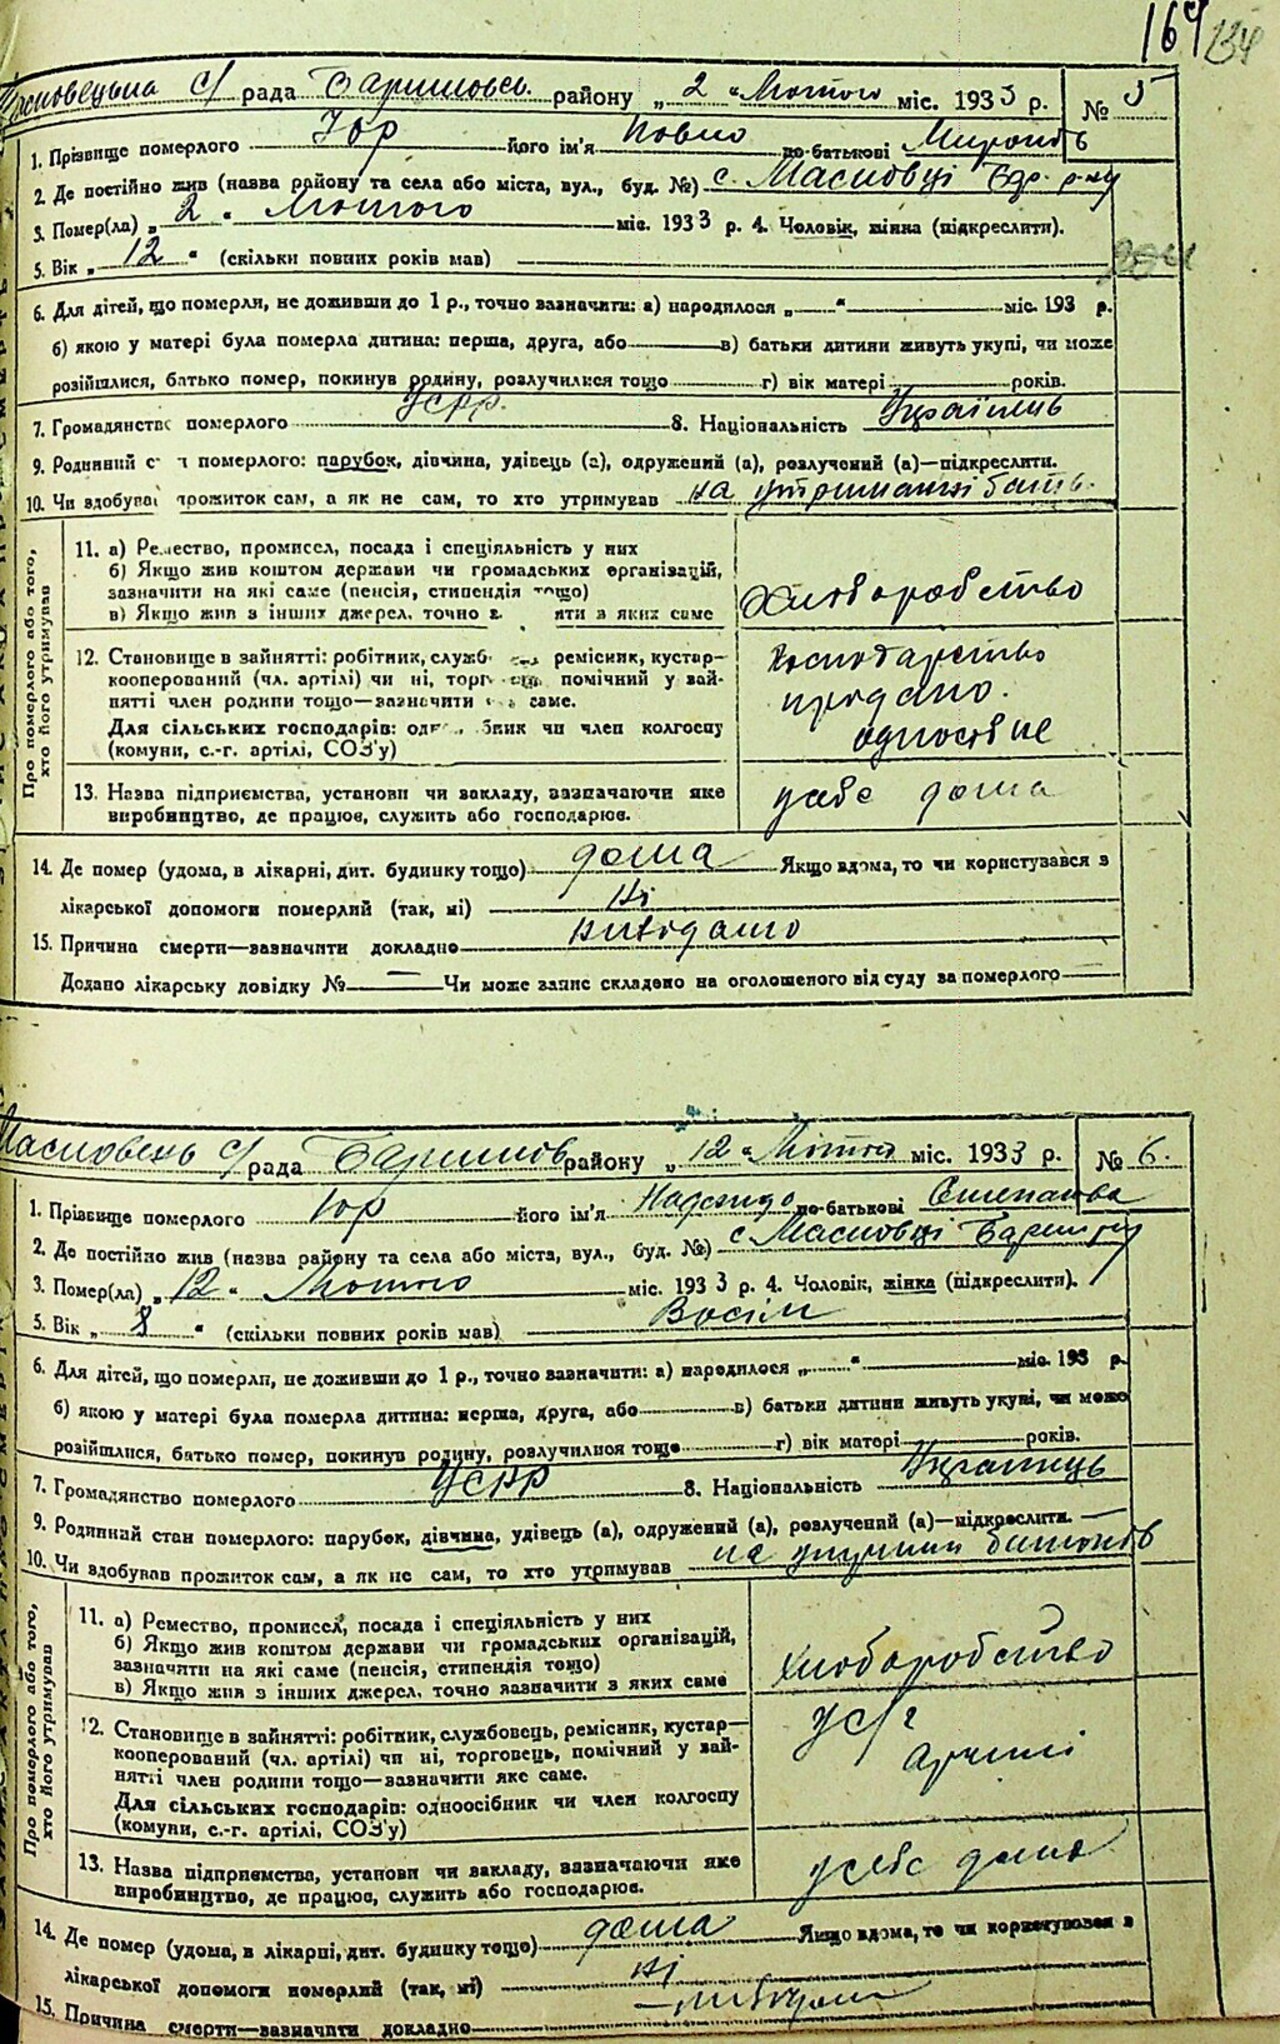 164 234
Масковецька с/рада Баришовсь. району „2“ Лютого міс. 1933 р. № 5
1. Прізвище померлого Юр його ім'я Павло по-батькові Миронов
2. Де постійно жив (назва району та села або міста, вул., буд. №) с. Масковці Бар. р-ну
3. Помер(ла) „2“ Лютого міс. 1933 р. 4. Чоловік, жінка (підкреслити).
5. Вік „12“ (скільки повних років мав)
6. Для дітей, що померли, не доживши до 1 р., точно зазначити: а) народилося „ “ міс. 193 р.
б) якою у матері була померла дитина: перша, друга, або в) батьки дитини живуть укупі, чи може
розійшлися, батько помер, покинув родину, розлучилися тощо г) вік матері років.
7. Громадянство померлого УСРР. 8. Національність Українець
9. Родинний померлого: парубок, дівчина, удівець (а), одружений (а), розлучений (а)—підкреслити.
10. Чи здобував прожиток сам, а як не сам, то хто утримував на утриманні батьк.
Про померлого або того, хто його утримував
11. а) Ремество, промисел, посада і спеціяльність у них
б) Якщо жив коштом держави чи громадських організацій,
зазначити на які саме (пенсія, стипендія тощо)
в) Якщо жив з інших джерел, точно з яких саме
Хліборобство
12. Становище в зайнятті: робітник, служб ремісник, кустар—
кооперований (чл. артілі) чи ні, торг помічний у зай-
нятті член родини тощо—зазначити саме.
Для сільських господарів: одн бник чи член колгоспу
(комуни, с.-г. артілі, СОЗ'у)
Господарство
продано.
13. Назва підприємства, установи чи закладу, зазначаючи яке
виробництво, де працює, служить або господарює.
у себе дома
14. Де помер (удома, в лікарні, дит. будинку тощо) дома Якщо вдома, то чи користувався з
лікарської допомоги померлий (так, ні) Ні
15. Причина смерти—зазначити докладно невідомо
Додано лікарську довідку № — Чи може запис складено на оголошеного від суду за померлого —
Масковець с/рада Баришов району „12“ Лютого міс. 1933 р. № 6.
1. Прізвище померлого Юр його ім'я Надежда по-батькові Степанова
2. Де постійно жив (назва району та села або міста, вул., буд. №) с Масковці Бариш р-ну
3. Помер(ла) „12“ Лютого міс. 1933 р. 4. Чоловік, жінка (підкреслити).
5. Вік „8“ (скільки повних років мав) Восім
6. Для дітей, що померли, не доживши до 1 р., точно зазначити: а) народилося „ “ міс. 193 р.
б) якою у матері була померла дитина: перша, друга, або в) батьки дитини живуть укупі, чи може
розійшлися, батько помер, покинув родину, розлучилися тощо г) вік матері років.
7. Громадянство померлого УСРР 8. Національність Українець
9. Родинний стан померлого: парубок, дівчина, удівець (а), одружений (а), розлучений (а)—підкреслити.
10. Чи здобував прожиток сам, а як не сам, то хто утримував на утриман батьків
Про померлого або того, хто його утримував
11. а) Ремество, промисел, посада і спеціяльність у них
б) Якщо жив коштом держави чи громадських організацій,
зазначити на які саме (пенсія, стипендія тощо)
в) Якщо жив з інших джерел, точно зазначити з яких саме
Хліборобство
12. Становище в зайнятті: робітник, службовець, ремісник, кустар—
кооперований (чл. артілі) чи ні, торговець, помічний у зай-
нятті член родини тощо—зазначити яке саме.
Для сільських господарів: одноосібник чи член колгоспу
(комуни, с.-г. артілі, СОЗ'у)
у с/г
артілі
13. Назва підприємства, установи чи закладу, зазначаючи яке
виробництво, де працює, служить або господарює.
у себе дома
14. Де помер (удома, в лікарні, дит. будинку тощо) дома Якщо вдома, то чи користувався з
лікарської допомоги померлий (так, ні) ні
15. Причина смерти—зазначити докладно